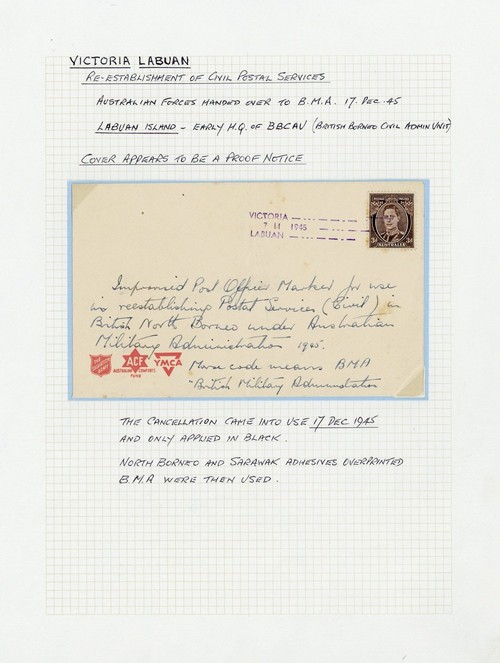 VICTORIA LABUAN
RE-ESTABLISHMENT OF CIVIL POSTAL SERVICES
AUSTRALIAN FORCES HANDED OVER TO B.M.A. 17 DEC 45
LABUAN ISLAND - EARLY H.Q. OF BBCAU (BRITISH BORNEO CIVIL ADMIN UNIT)
COVER APPEARS TO BE A PROOF NOTICE
VICTORIA
7 11 1945
LABUAN
3D 3D
AUSTRALIA
Improvised Post Office Marker for use
in reestablishing Postal Services (Civil) in
British North Borneo under Australian
Military Administration 1945.
THE SALVATION ARMY
ACF
AUSTRALIAN COMFORTS FUND
YMCA
Morse code means BMA
"British Military Administration
THE CANCELLATION CAME INTO USE 17 DEC 1945
AND ONLY APPLIED IN BLACK.
NORTH BORNEO AND SARAWAK ADHESIVES OVERPRINTED
B.M.A WERE THEN USED.